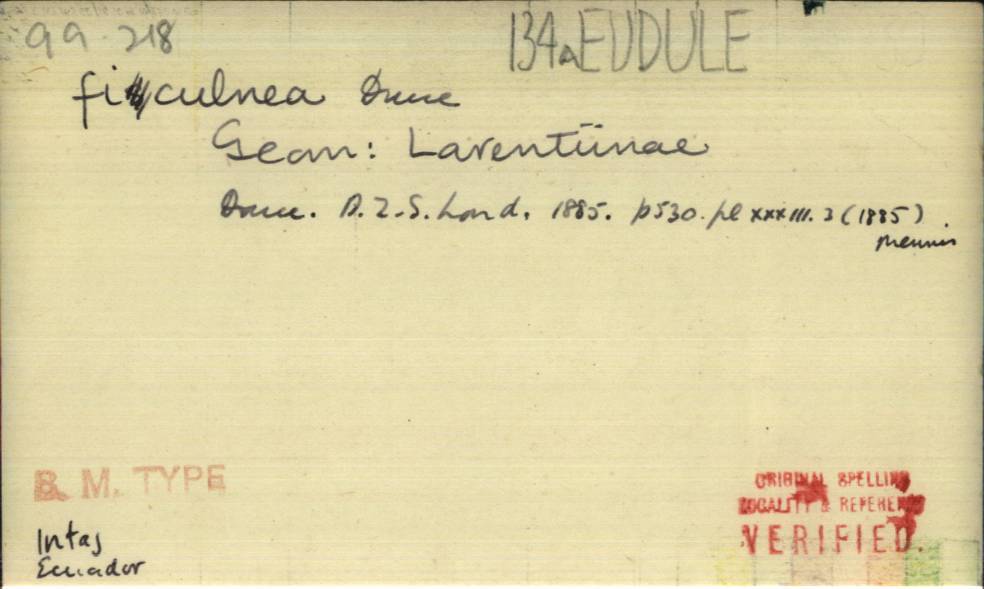 99.218
134a EUDULE
ficulnea Druce
Geom: Larentiinae
Druce. P.Z.S. Lond. 1885. p530. pl xxxiii. 3 (1885)
B. M. TYPE
Intaj
Ecuador
ORIGINAL SPELLING
LOCALITY & REFERENCE
VERIFIED.